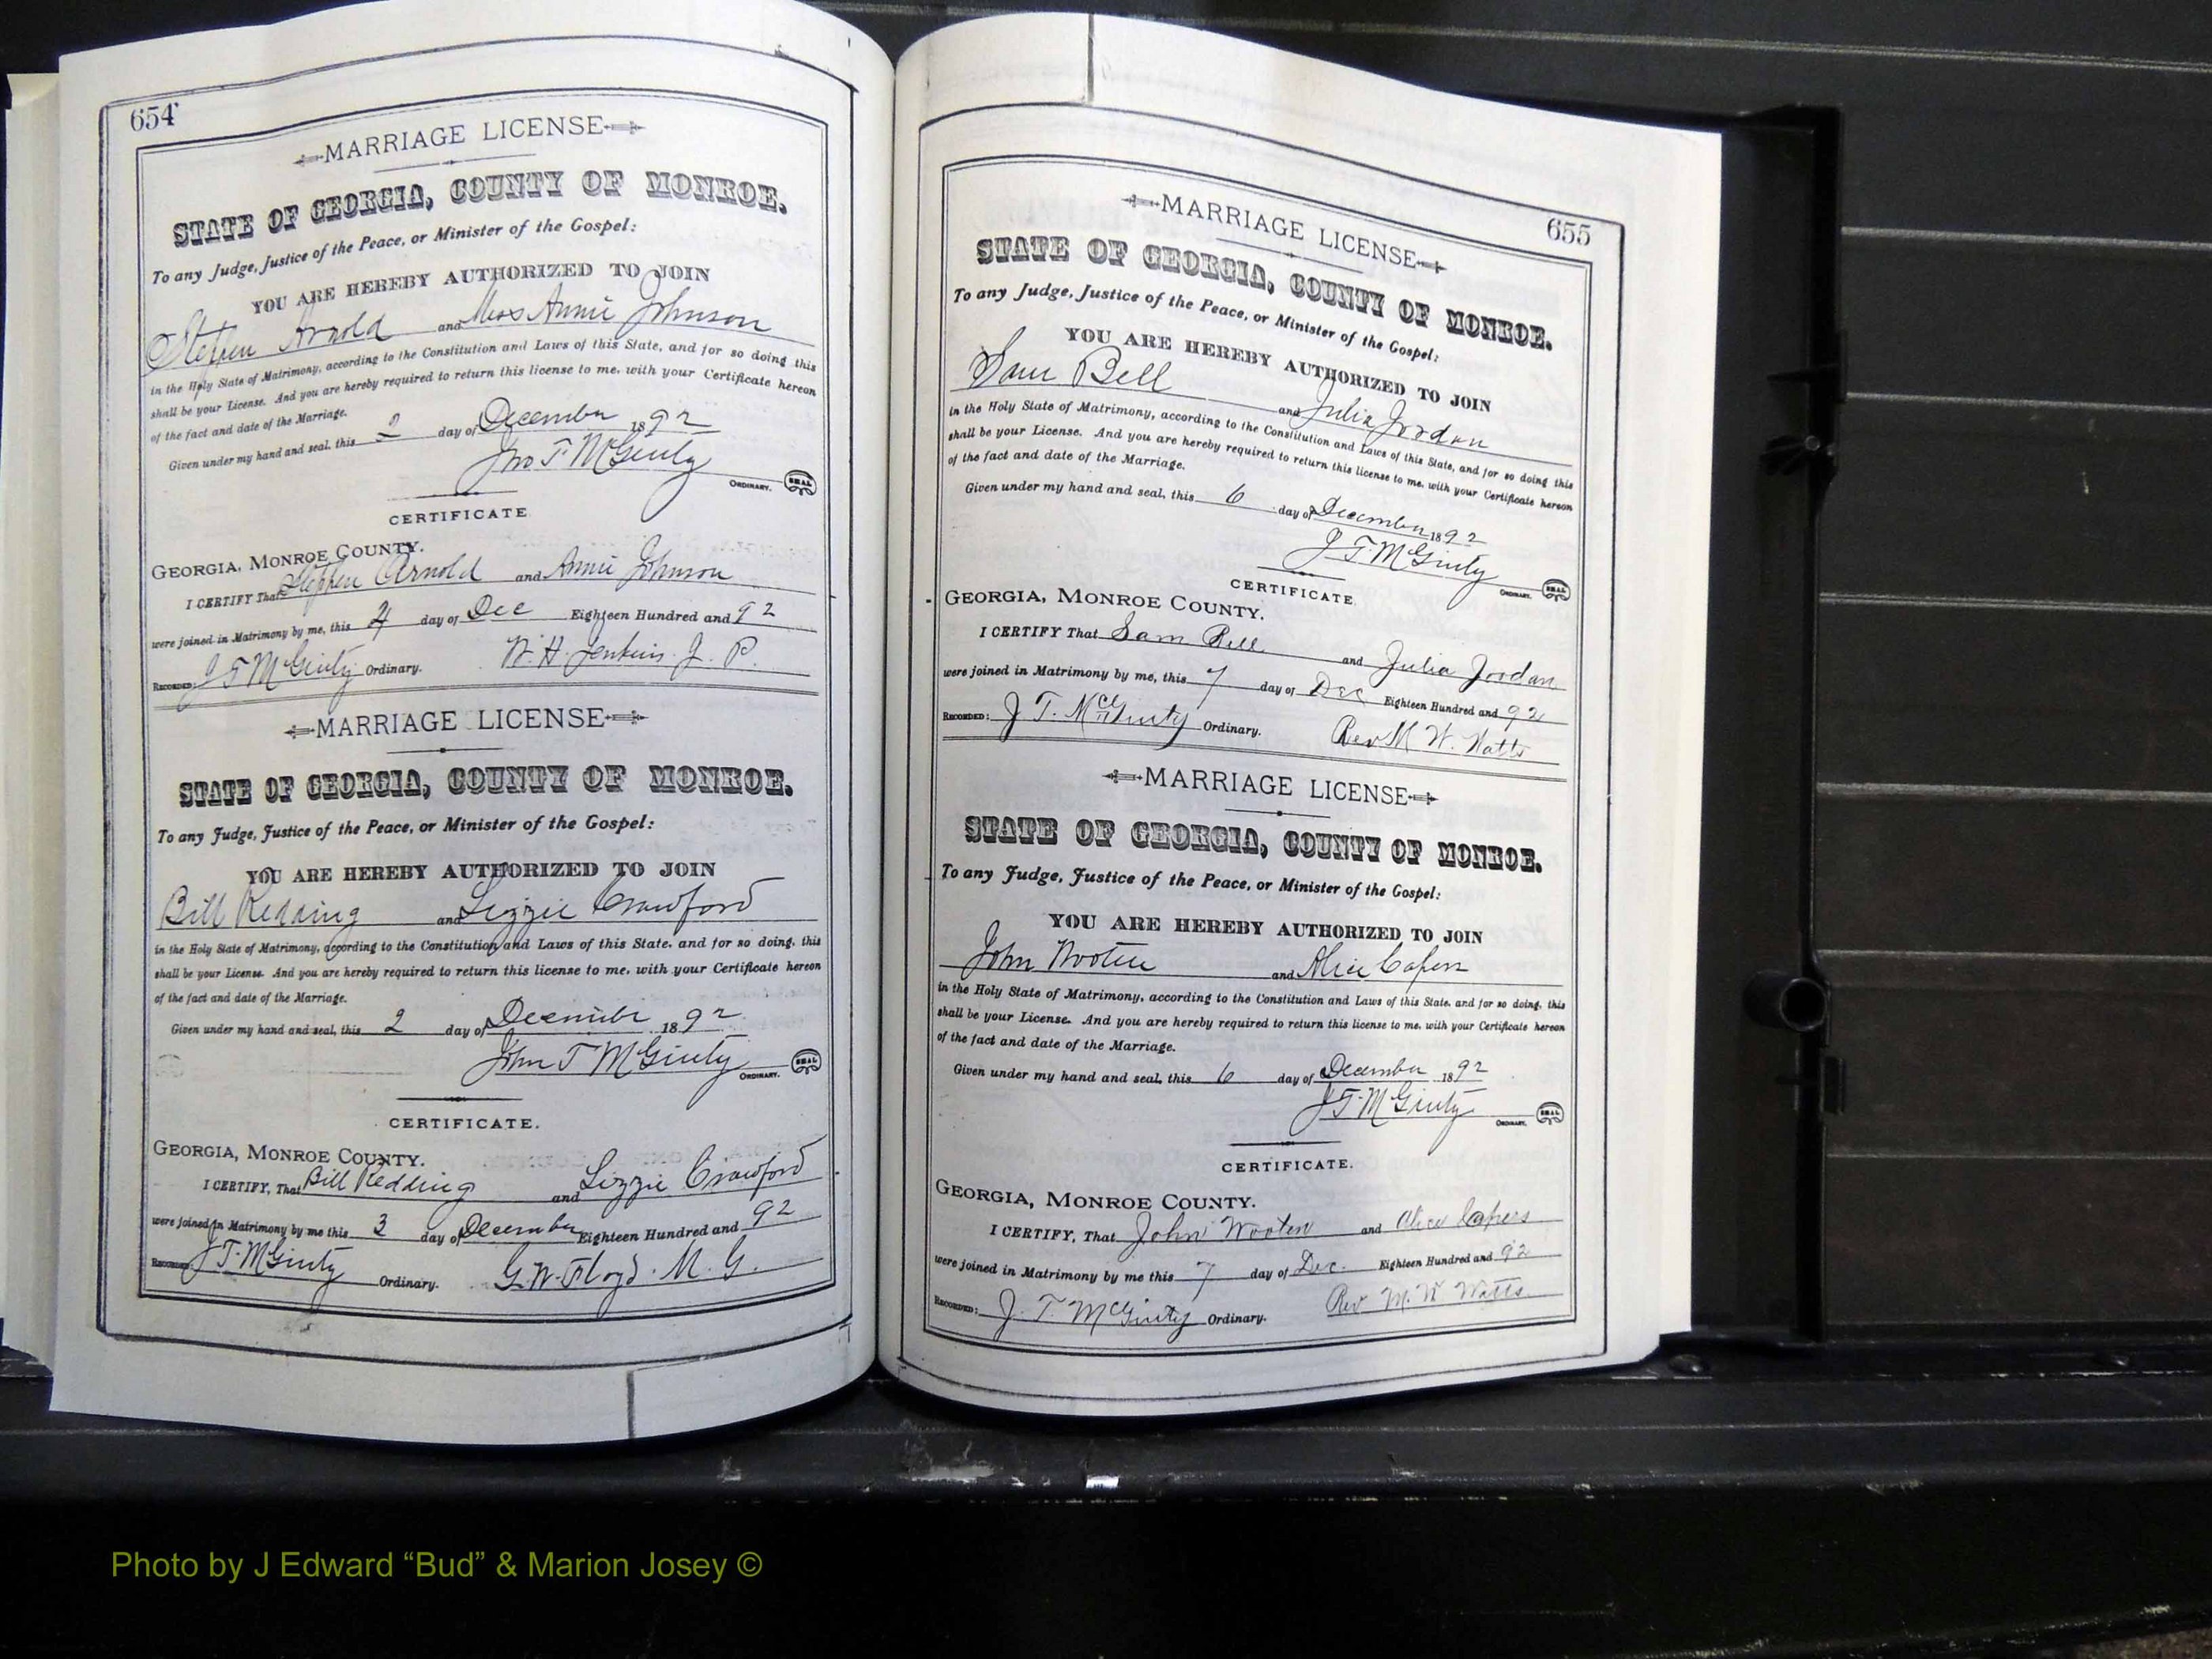 654
MARRIAGE LICENSE
STATE OF GEORGIA, COUNTY OF MONROE.
To any Judge, Justice of the Peace, or Minister of the Gospel:
YOU ARE HEREBY AUTHORIZED TO JOIN
Stephen Arnold and Miss Annie Johnson
in the Holy State of Matrimony, according to the Constitution and Laws of this State, and for so doing this
shall be your License. And you are hereby required to return this license to me, with your Certificate hereon
of the fact and date of the Marriage.
Given under my hand and seal, this 2 day of December 1892
Jno T McGinty
ORDINARY. SEAL
CERTIFICATE
GEORGIA, MONROE COUNTY.
I CERTIFY That Stephen Arnold and Annie Johnson
were joined in Matrimony by me, this 4 day of Dec Eighteen Hundred and 92
RECORDED: J T McGinty Ordinary. W. H. Jenkins J. P.
MARRIAGE LICENSE
STATE OF GEORGIA, COUNTY OF MONROE.
To any Judge, Justice of the Peace, or Minister of the Gospel:
YOU ARE HEREBY AUTHORIZED TO JOIN
Bill Redding and Lizzie Crawford
in the Holy State of Matrimony, according to the Constitution and Laws of this State, and for so doing, this
shall be your License. And you are hereby required to return this license to me, with your Certificate hereon
of the fact and date of the Marriage.
Given under my hand and seal, this 2 day of December 1892
John T McGinty
ORDINARY. SEAL
CERTIFICATE.
GEORGIA, MONROE COUNTY.
I CERTIFY, That Bill Redding and Lizzie Crawford
were joined in Matrimony by me this 3 day of December Eighteen Hundred and 92
RECORDED: J T McGinty Ordinary. G. W. Floyd. M. G.
655
MARRIAGE LICENSE
STATE OF GEORGIA, COUNTY OF MONROE.
To any Judge, Justice of the Peace, or Minister of the Gospel:
YOU ARE HEREBY AUTHORIZED TO JOIN
Sam Bell and Julia Jordan
in the Holy State of Matrimony, according to the Constitution and Laws of this State, and for so doing this
shall be your License. And you are hereby required to return this license to me, with your Certificate hereon
of the fact and date of the Marriage.
Given under my hand and seal, this 6 day of December 1892
J T McGinty
ORDINARY. SEAL
CERTIFICATE
GEORGIA, MONROE COUNTY.
I CERTIFY That Sam Bell and Julia Jordan
were joined in Matrimony by me, this 7 day of Dec Eighteen Hundred and 92
RECORDED: J. T. McGinty Ordinary. Rev M. W. Watts
MARRIAGE LICENSE
STATE OF GEORGIA, COUNTY OF MONROE.
To any Judge, Justice of the Peace, or Minister of the Gospel:
YOU ARE HEREBY AUTHORIZED TO JOIN
John Wooten and Alice Capers
in the Holy State of Matrimony, according to the Constitution and Laws of this State, and for so doing, this
shall be your License. And you are hereby required to return this license to me, with your Certificate hereon
of the fact and date of the Marriage.
Given under my hand and seal, this 6 day of December 1892
J T McGinty
ORDINARY. SEAL
CERTIFICATE.
GEORGIA, MONROE COUNTY.
I CERTIFY, That John Wooten and Alice Capers
were joined in Matrimony by me this 7 day of Dec. Eighteen Hundred and 92
RECORDED: J. T. McGinty Ordinary. Rev M. W. Watts.
Photo by J Edward “Bud” & Marion Josey ©